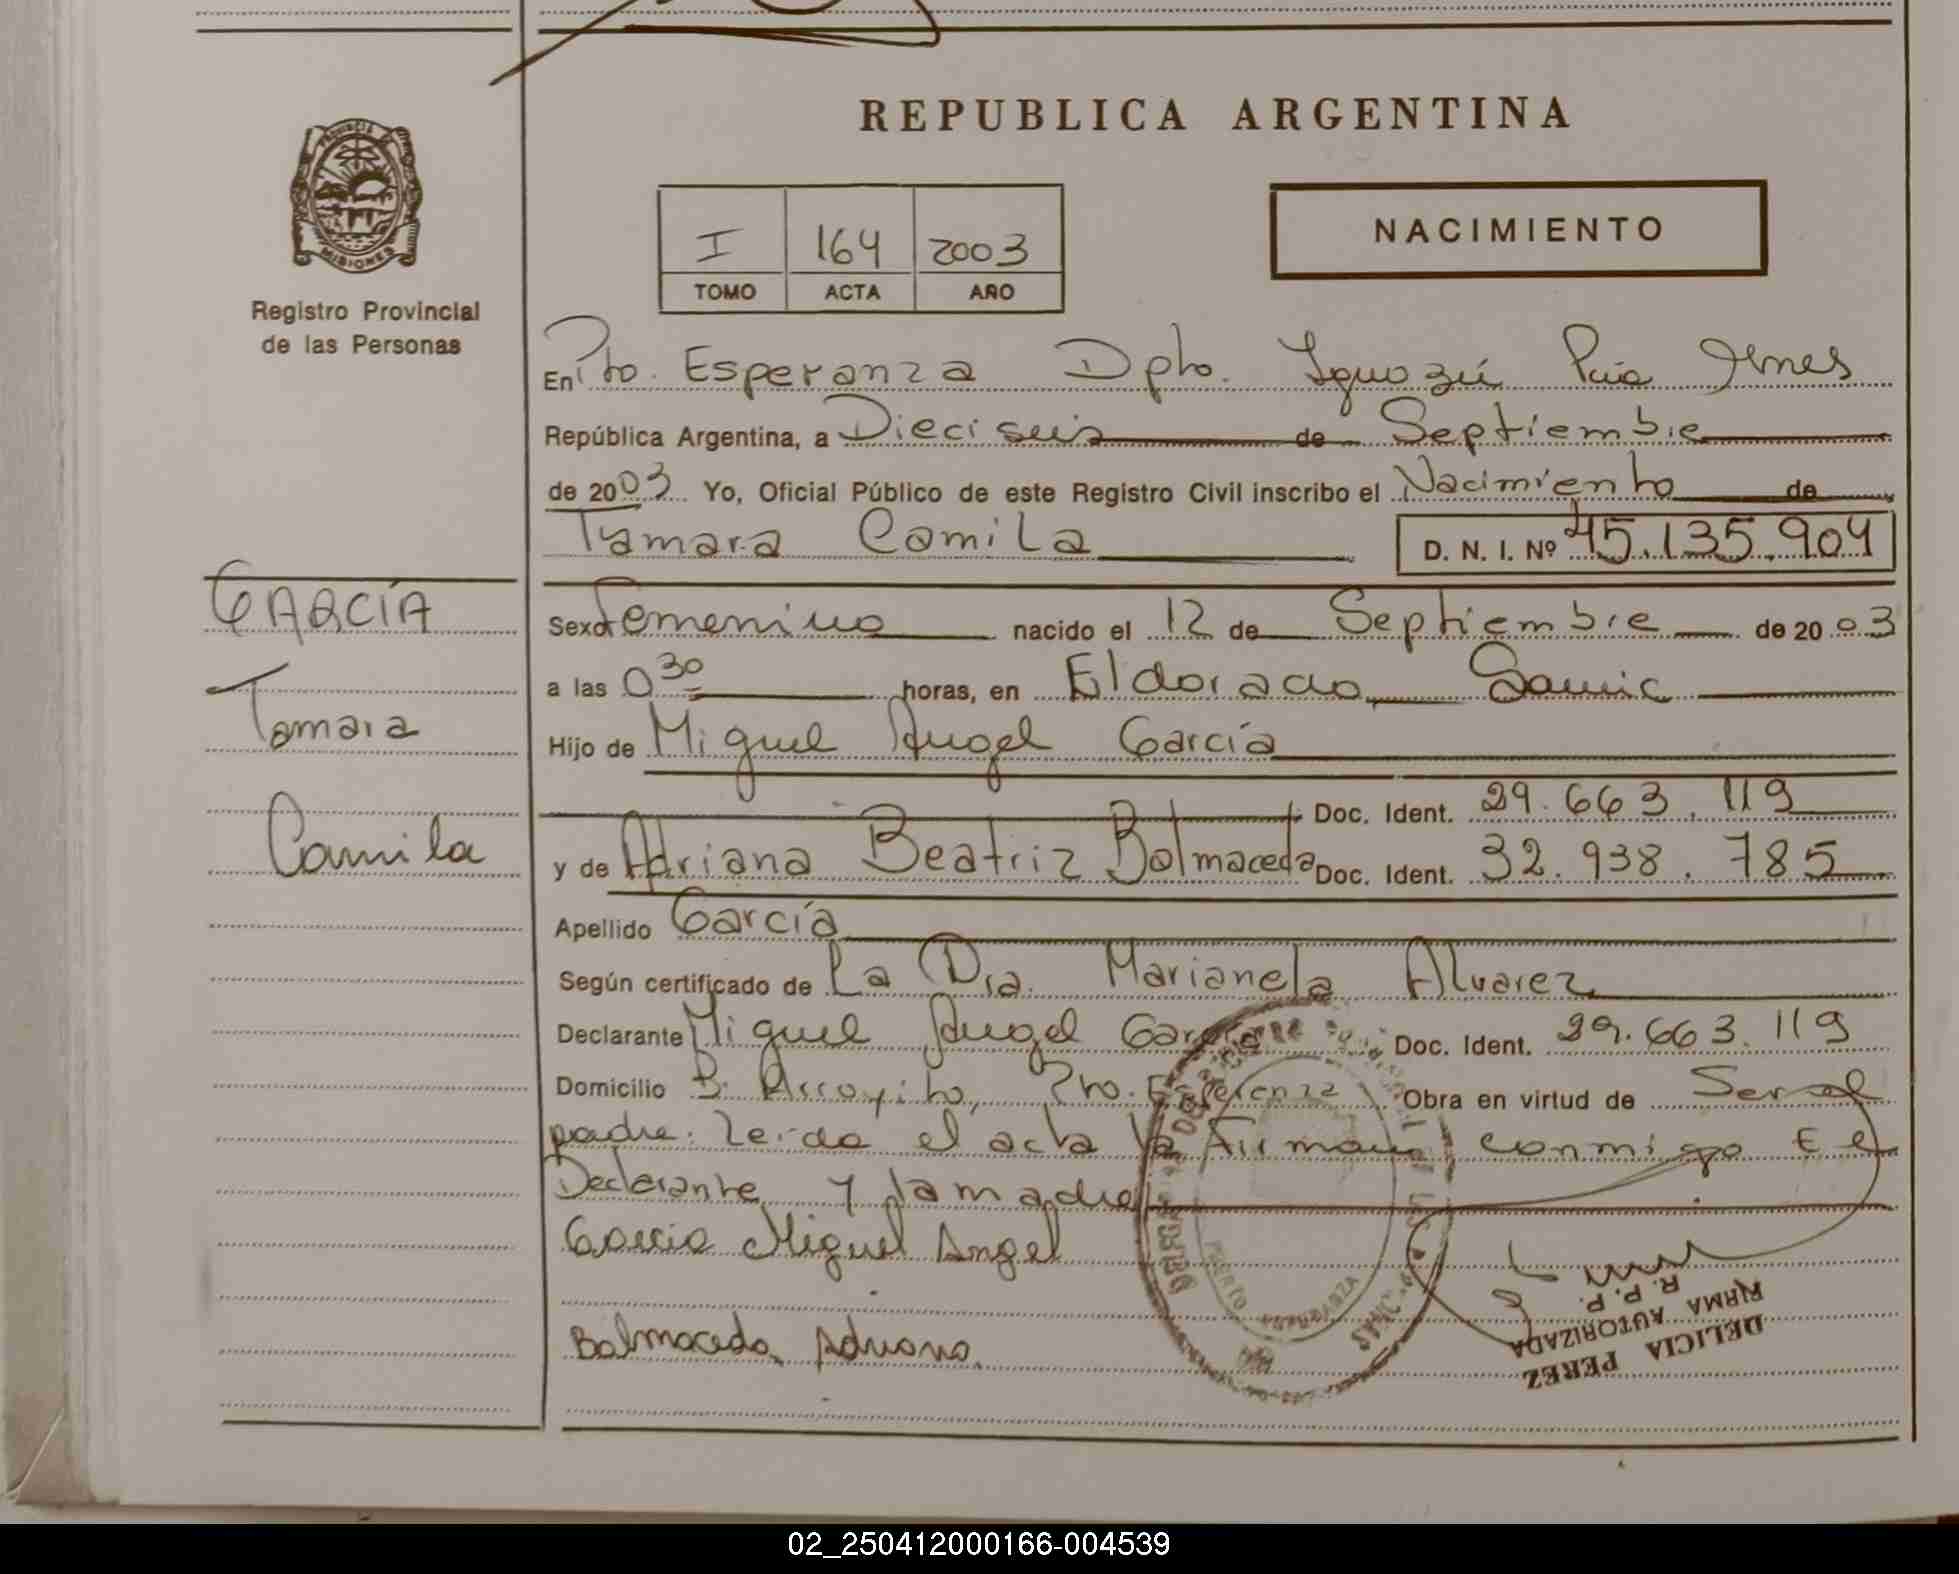 REPUBLICA ARGENTINA
PROVINCIA
MISIONES
Registro Provincial
de las Personas
I 164 2003
TOMO ACTA AÑO
NACIMIENTO
En Pto. Esperanza Dpto. Iguazú Pcia Mnes
República Argentina, a Dieciseis de Septiembre
de 2003 Yo, Oficial Público de este Registro Civil inscribo el Nacimiento de
Tamara Camila D. N. I. Nº 45.135.904
GARCÍA
Tamara
Camila
Sexo Femenino nacido el 12 de Septiembre de 2003
a las 0 30 horas, en Eldorado, Samic
Hijo de Miguel Angel García
Doc. Ident. 29.663.119
y de Adriana Beatriz Balmaceda Doc. Ident. 32.938.785
Apellido García
Según certificado de La Dra. Marianela Alvarez
Declarante Miguel Angel García Doc. Ident. 29.663.119
Domicilio B. Arroyito, Pto. Esperanza Obra en virtud de Ser el
padre. Leida el acta la firman conmigo El
Declarante y la madre
Garcia Miguel Angel
Balmaceda Adriana
PUERTO ESPERANZA
DELICIA PEREZ
FIRMA AUTORIZADA
R. P. P.
02_250412000166-004539